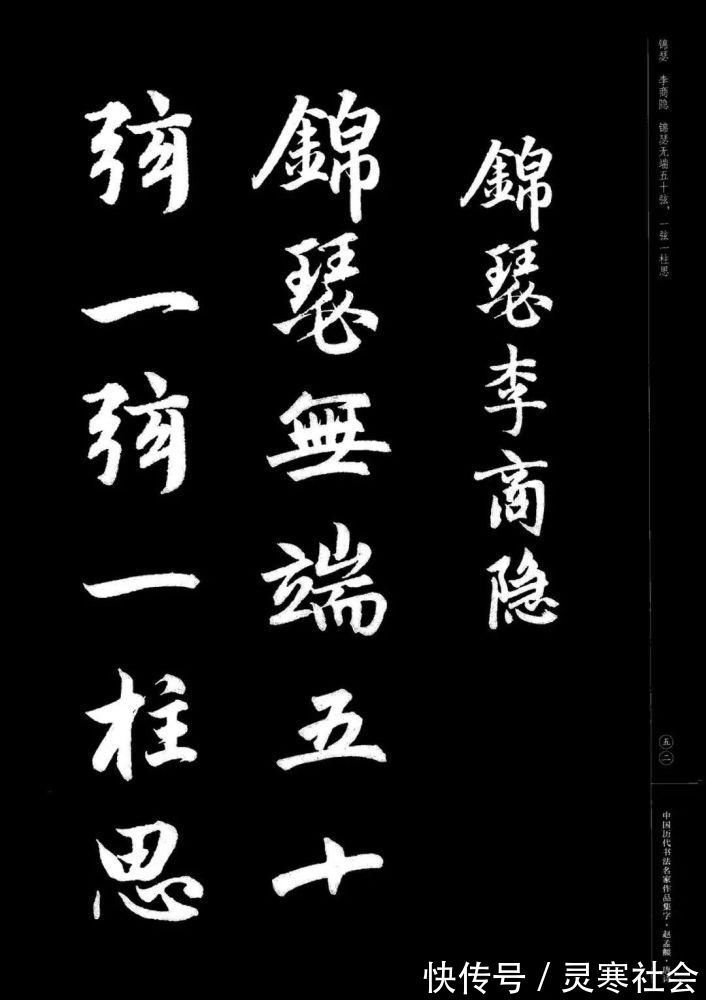 錦瑟李商隐
錦瑟無端五十
弦一弦一柱思
锦瑟 李商隐 锦瑟无端五十弦，一弦一柱思
五二
中国历代书法名家作品集字·赵孟頫·
快传号／灵寒社会